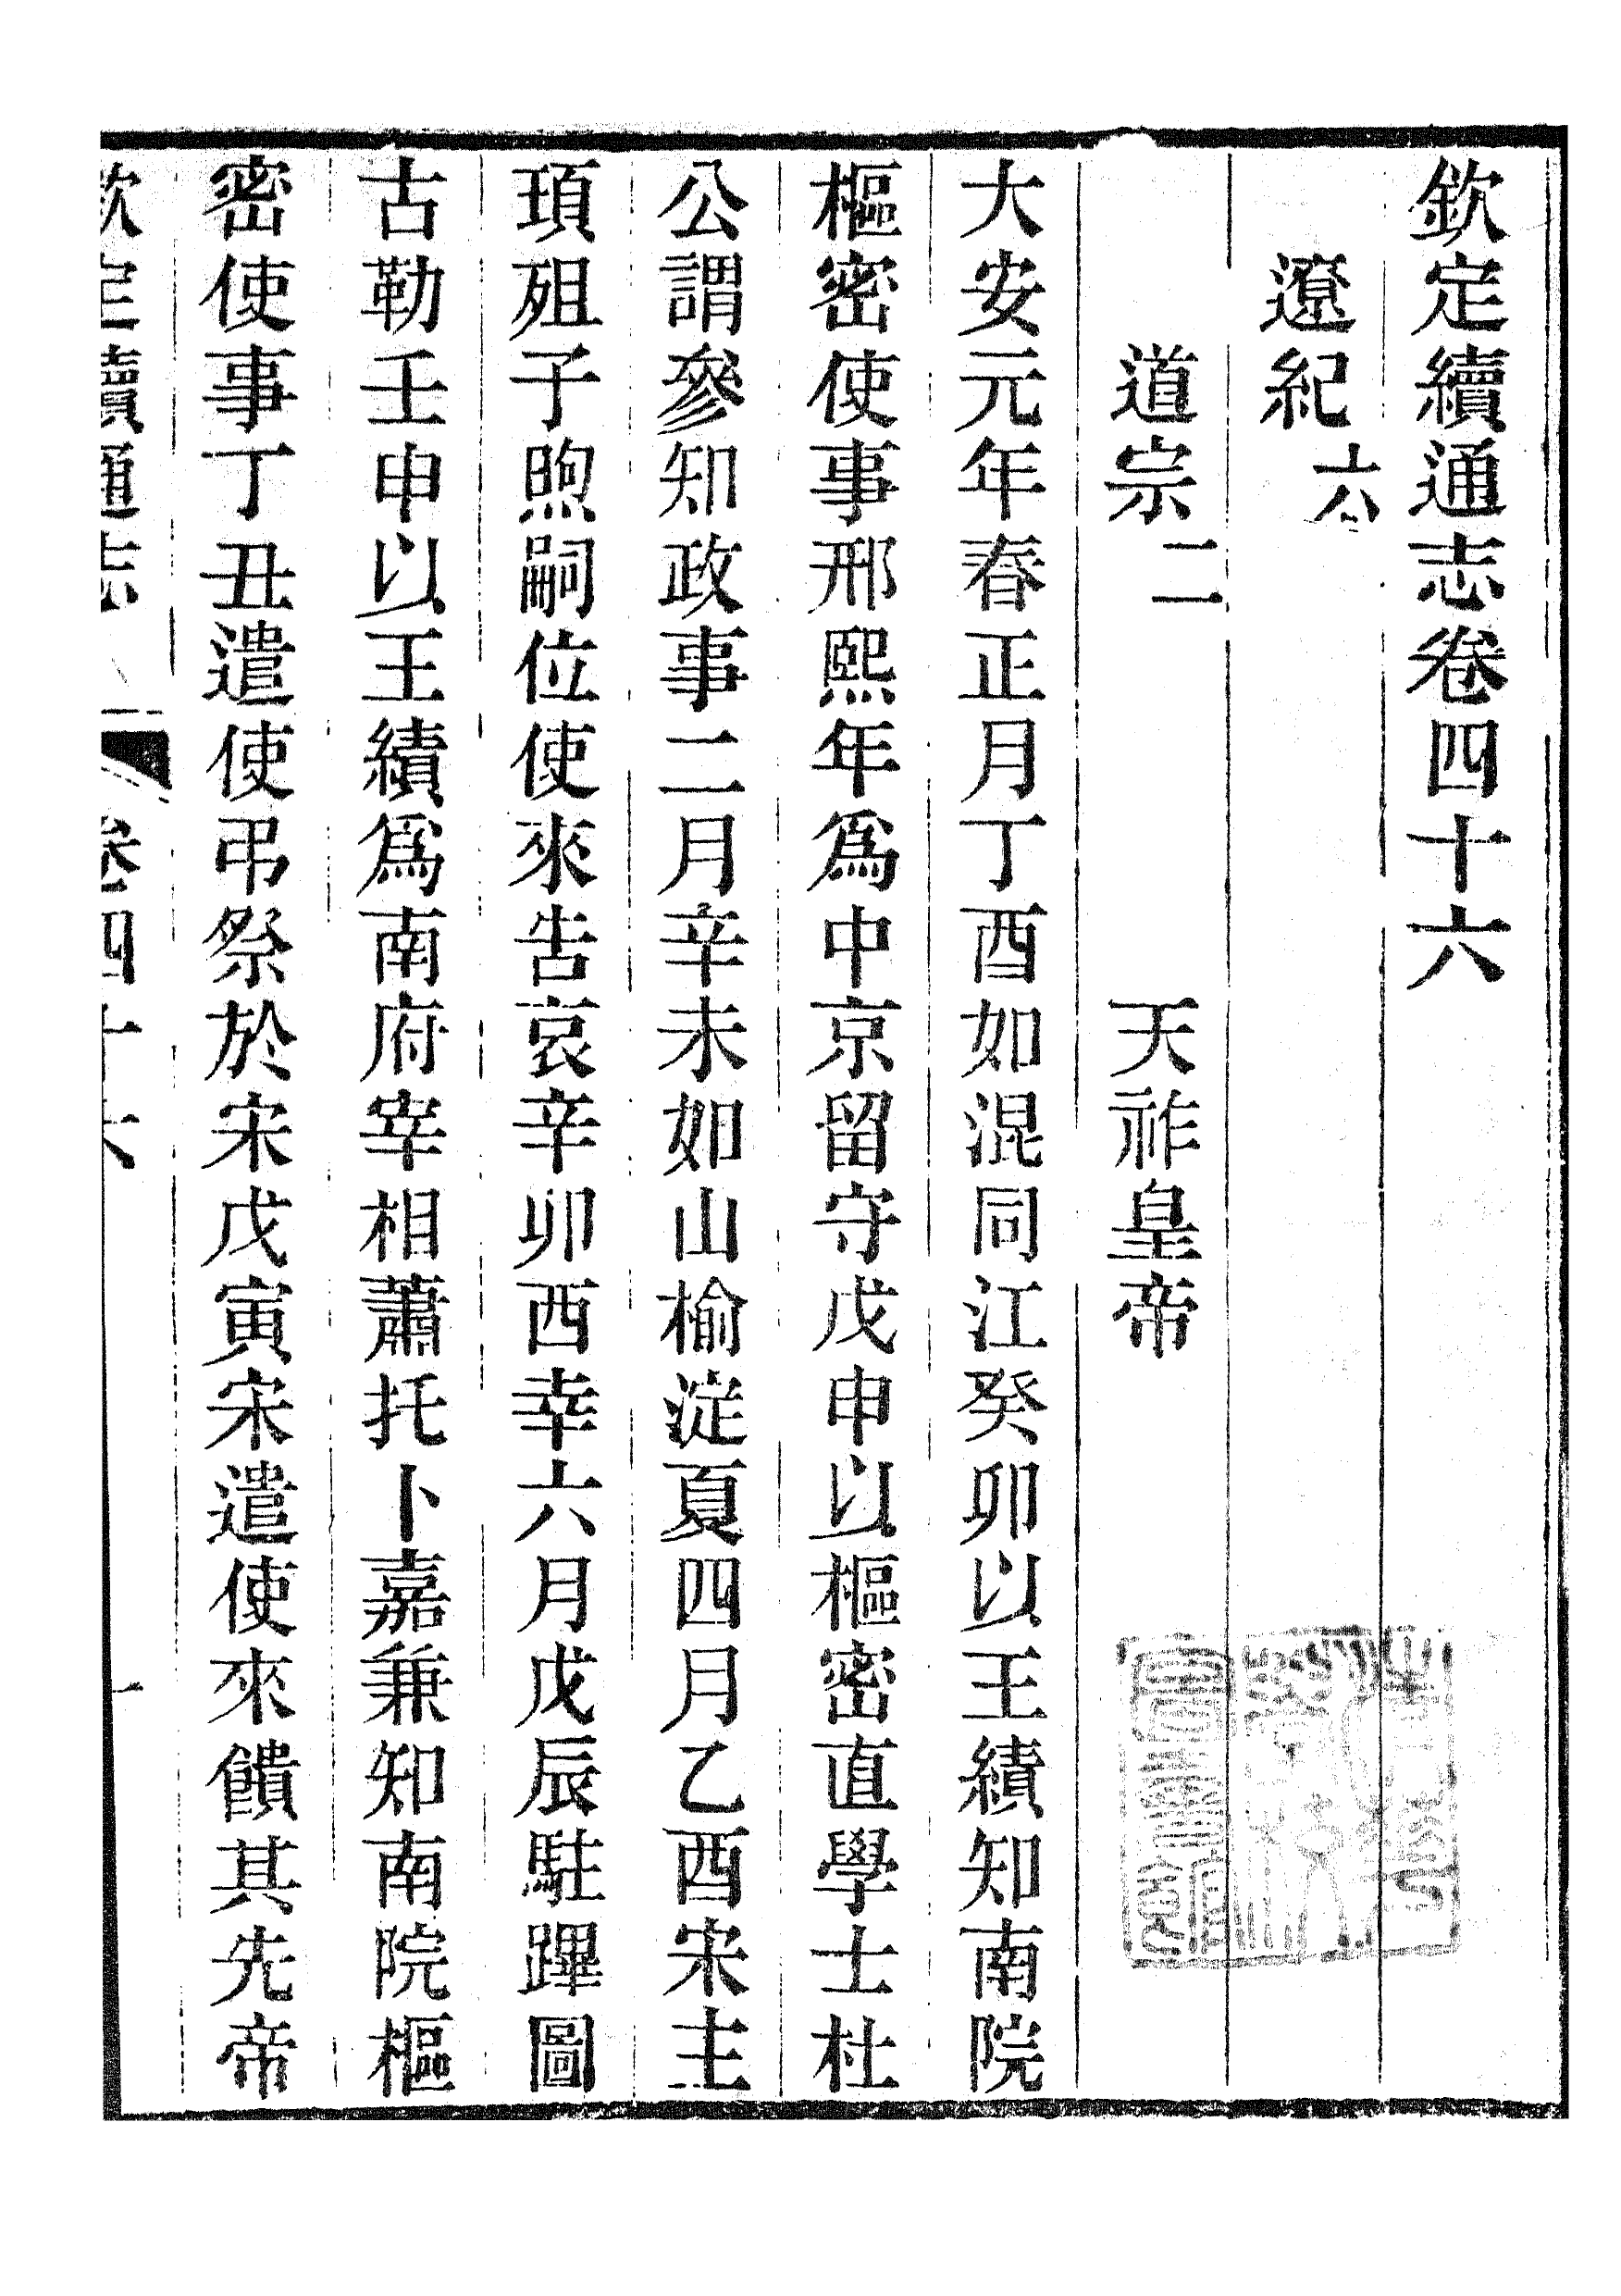 欽定續通志卷四十六
遼紀六
道宗二　天祚皇帝
大安元年春正月丁酉如混同江癸卯以王績知南院
樞密使事邢熙年爲中京留守戊申以樞密直學士杜
公謂參知政事二月辛未如山榆淀夏四月乙酉宋主
頊殂子煦嗣位使來告哀辛卯西幸六月戊辰駐蹕圖
古勒壬申以王績爲南府宰相蕭托卜嘉兼知南院樞
密使事丁丑遣使弔祭於宋戊寅宋遣使來饋其先帝
欽定續通志　卷四十六　一